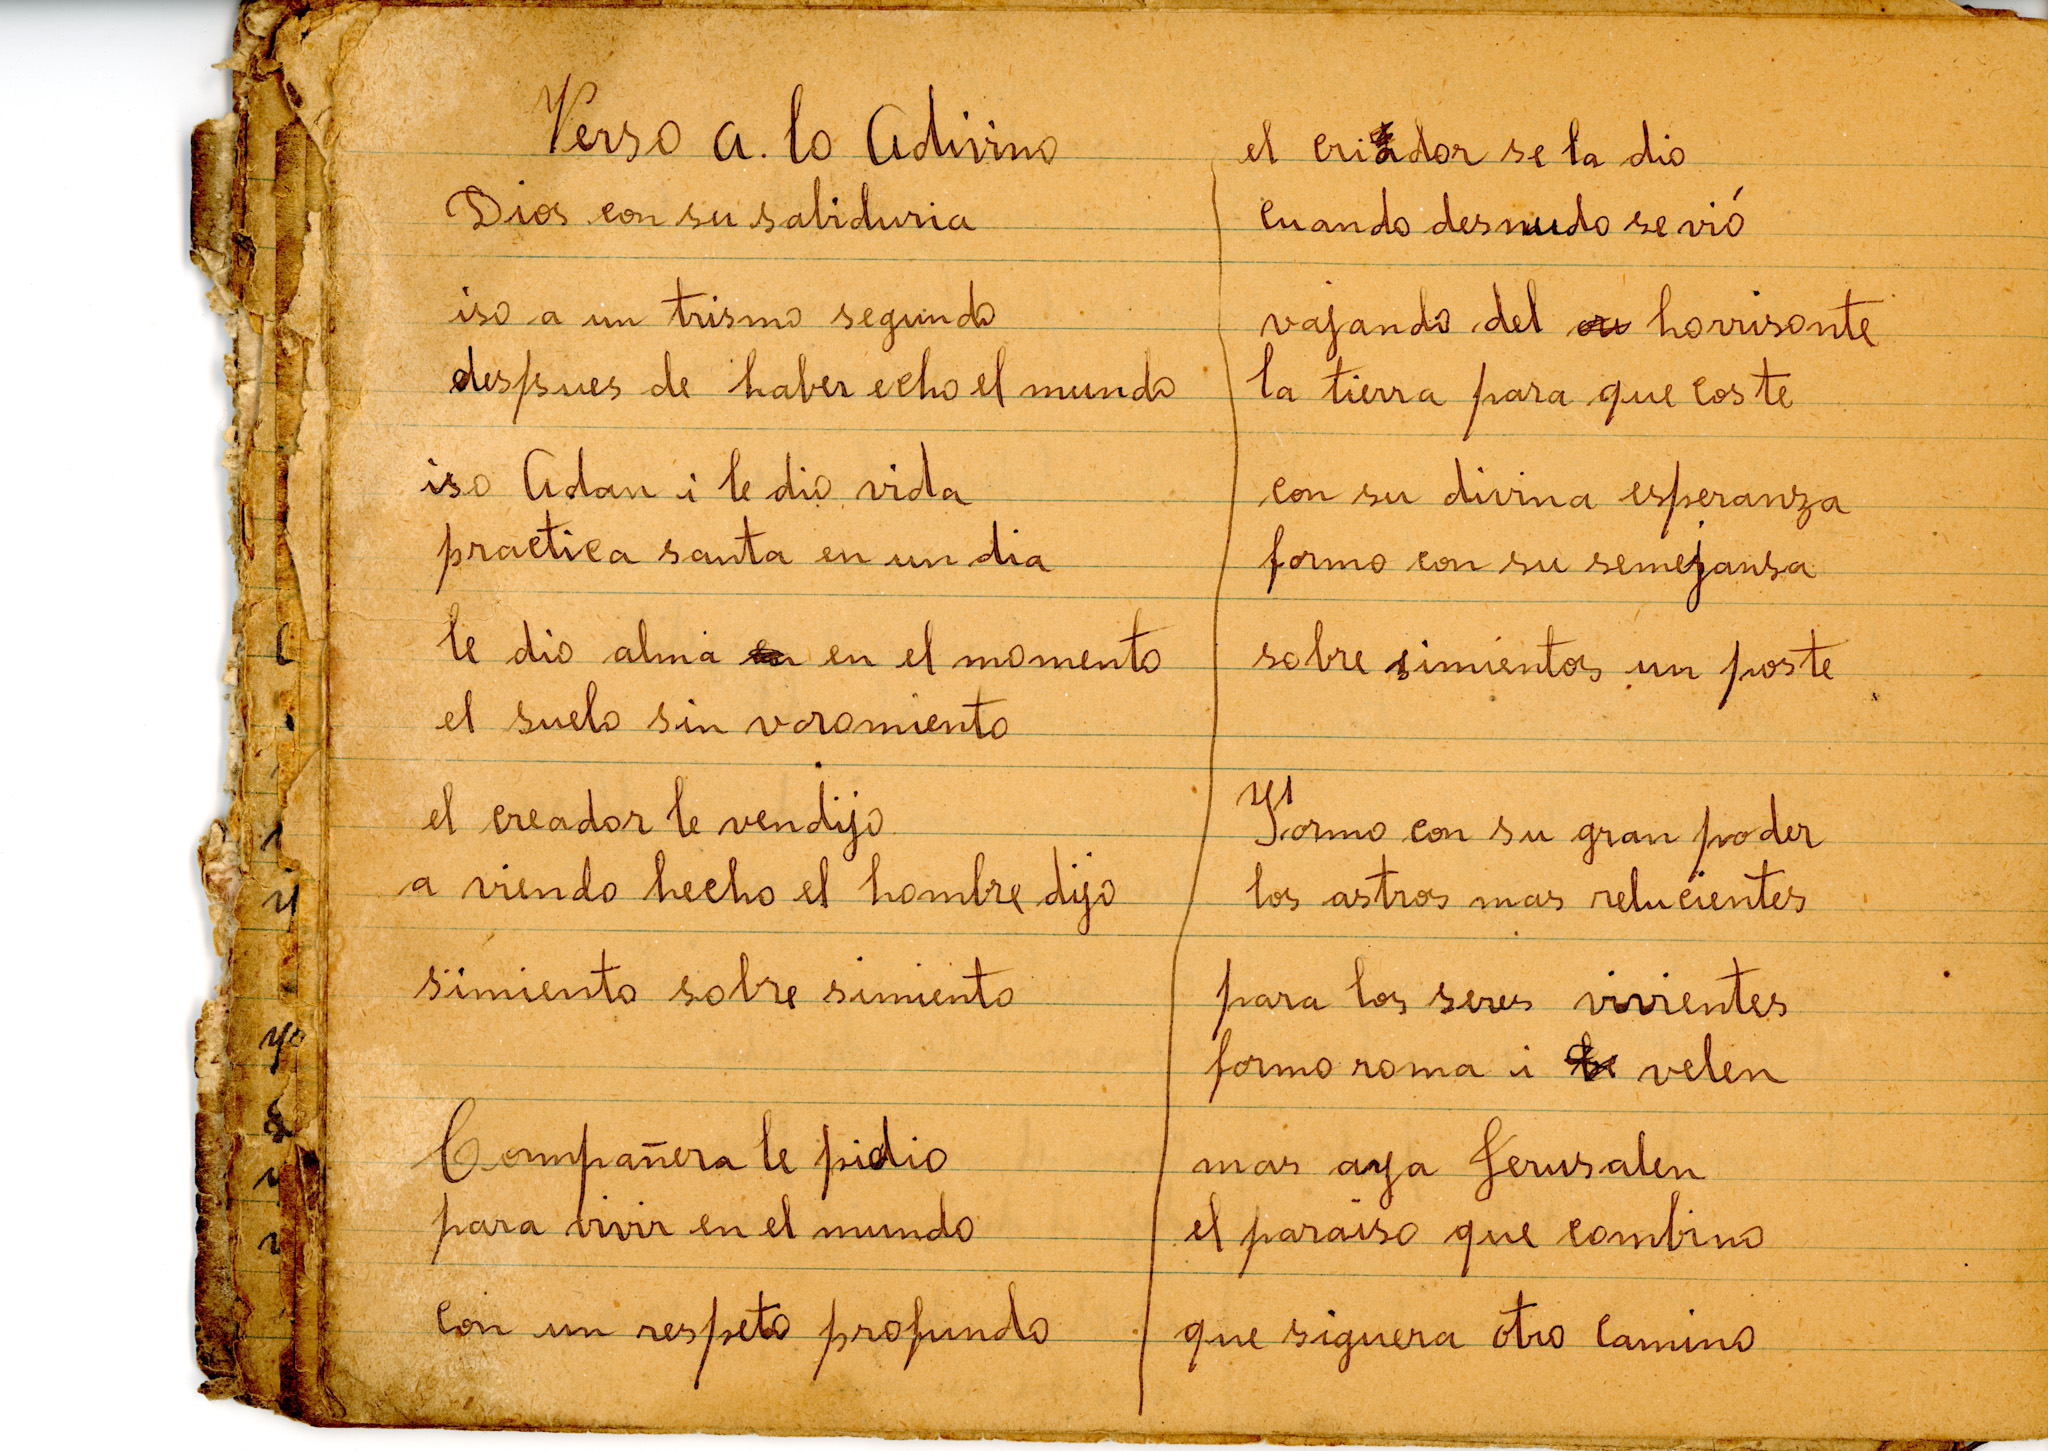 Verso a. lo Adivino
Dios con su sabiduria
iso a un trismo segundo
despues de haber echo el mundo
iso Adan i le dio vida
practica santa en un dia
le dio alma en el momento
el suelo sin voromiento
el creador le vendijo
a viendo hecho el hombre dijo
simiento sobre simiento
Compañera le pidio
para vivir en el mundo
con un respeto profundo
el criador se la dio
cuando desnudo se vió
vajando del horrisonte
la tierra para que coste
con su divina esperanza
formo con su semejansa
sobre simientos un poste
Formo con su gran poder
los astros mas relucientes
para los seres vivientes
formo roma i velen
mas aya Jerusalen
el paraiso que combino
que siguera otro camino